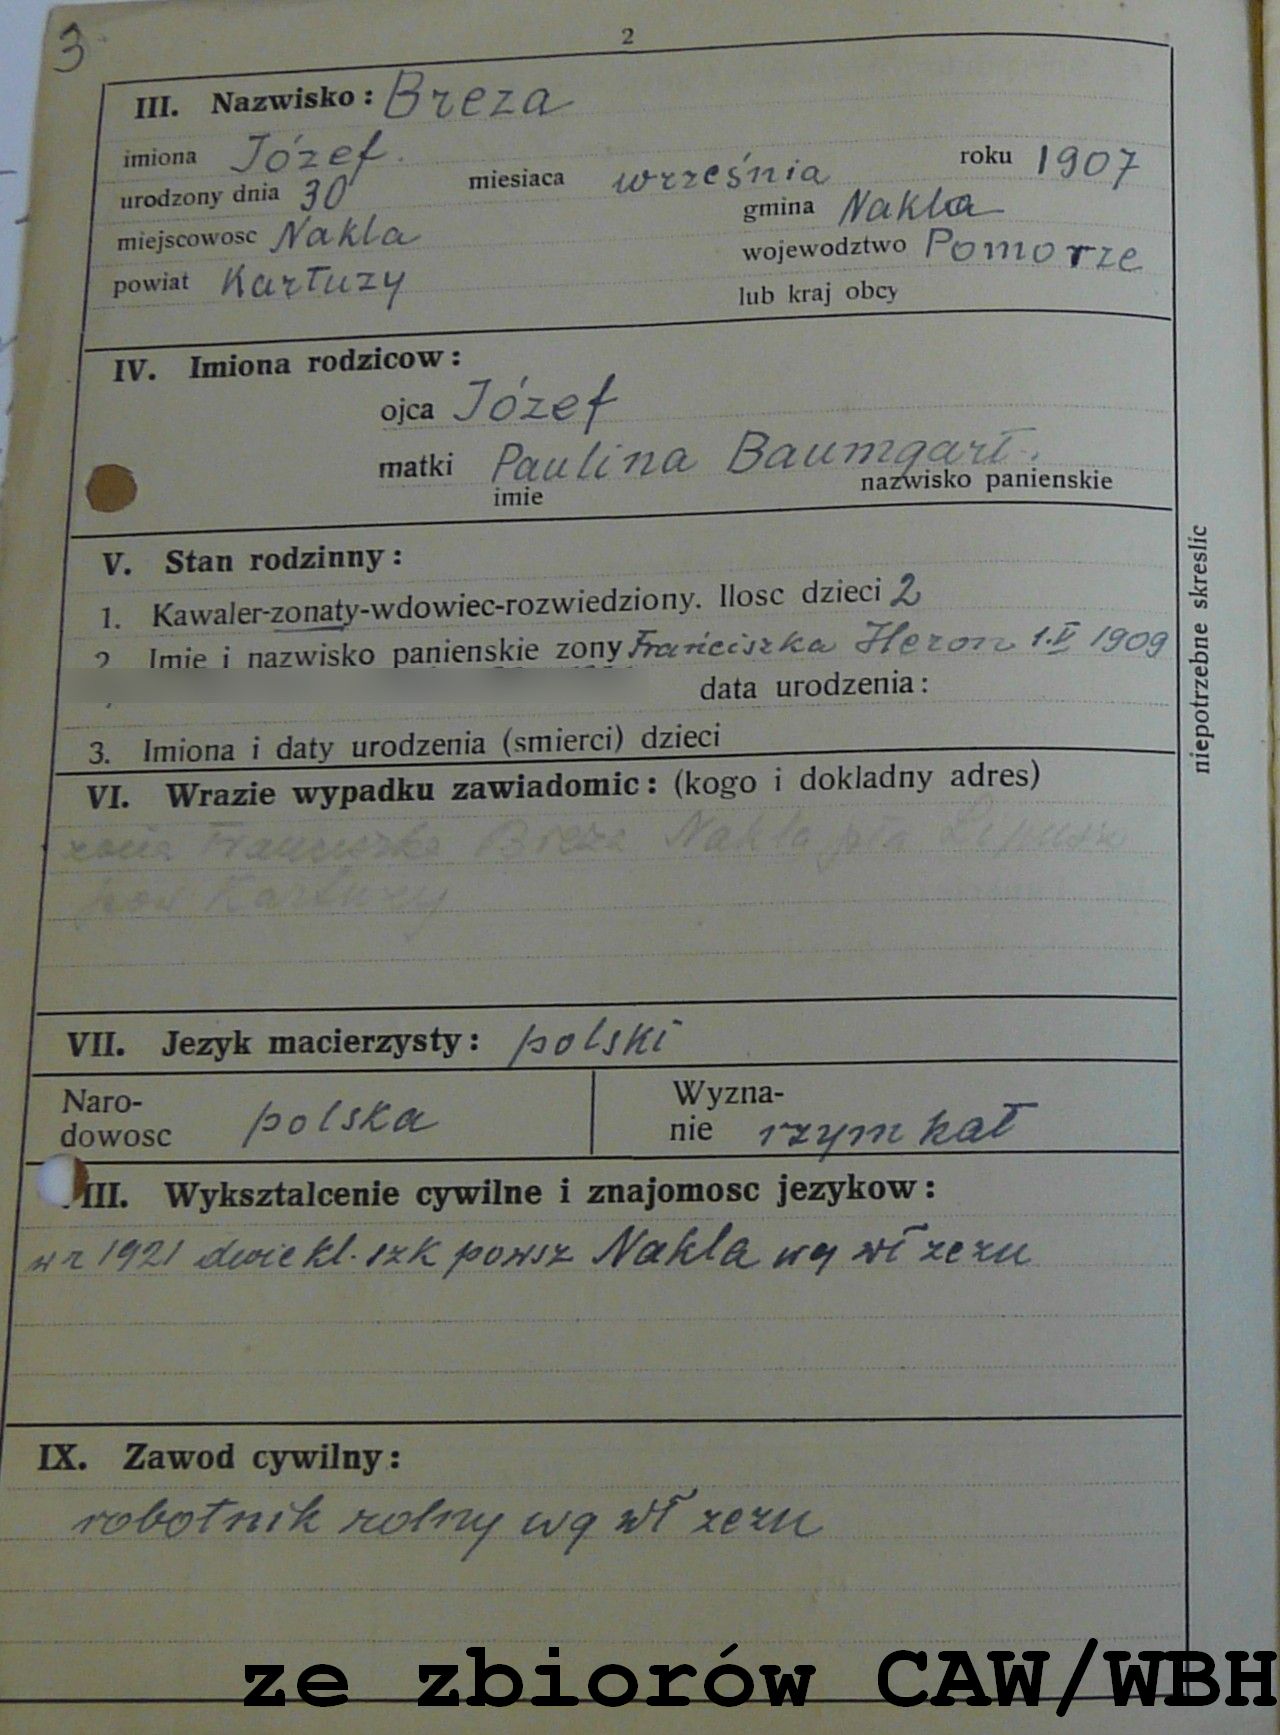 3
2
III. Nazwisko: Breza
imiona Józef.
urodzony dnia 30 miesiaca września roku 1907
miejscowosc Nakla gmina Nakla
powiat Kartuzy wojewodztwo Pomorze
lub kraj obcy
IV. Imiona rodzicow:
ojca Józef
matki Paulina Baumgart.
imie nazwisko panienskie
V. Stan rodzinny:
1. Kawaler-zonaty-wdowiec-rozwiedziony. Ilosc dzieci 2
2. Imie i nazwisko panienskie zony Franciszka Heron 1.V 1909
data urodzenia:
3. Imiona i daty urodzenia (smierci) dzieci
niepotrzebne skreslic
VI. Wrazie wypadku zawiadomic: (kogo i dokladny adres)
żona Franciszka Breza Nakla pta Lipusz
pow Kartuzy
VII. Jezyk macierzysty: polski
Naro-
dowosc polska
Wyzna-
nie rzym kat
III. Wyksztalcenie cywilne i znajomosc jezykow:
w r 1921 dwie kl. szk powsz Nakla wg wł zezn
IX. Zawod cywilny:
robotnik rolny wg wł zezn
ze zbiorów CAW/WBH